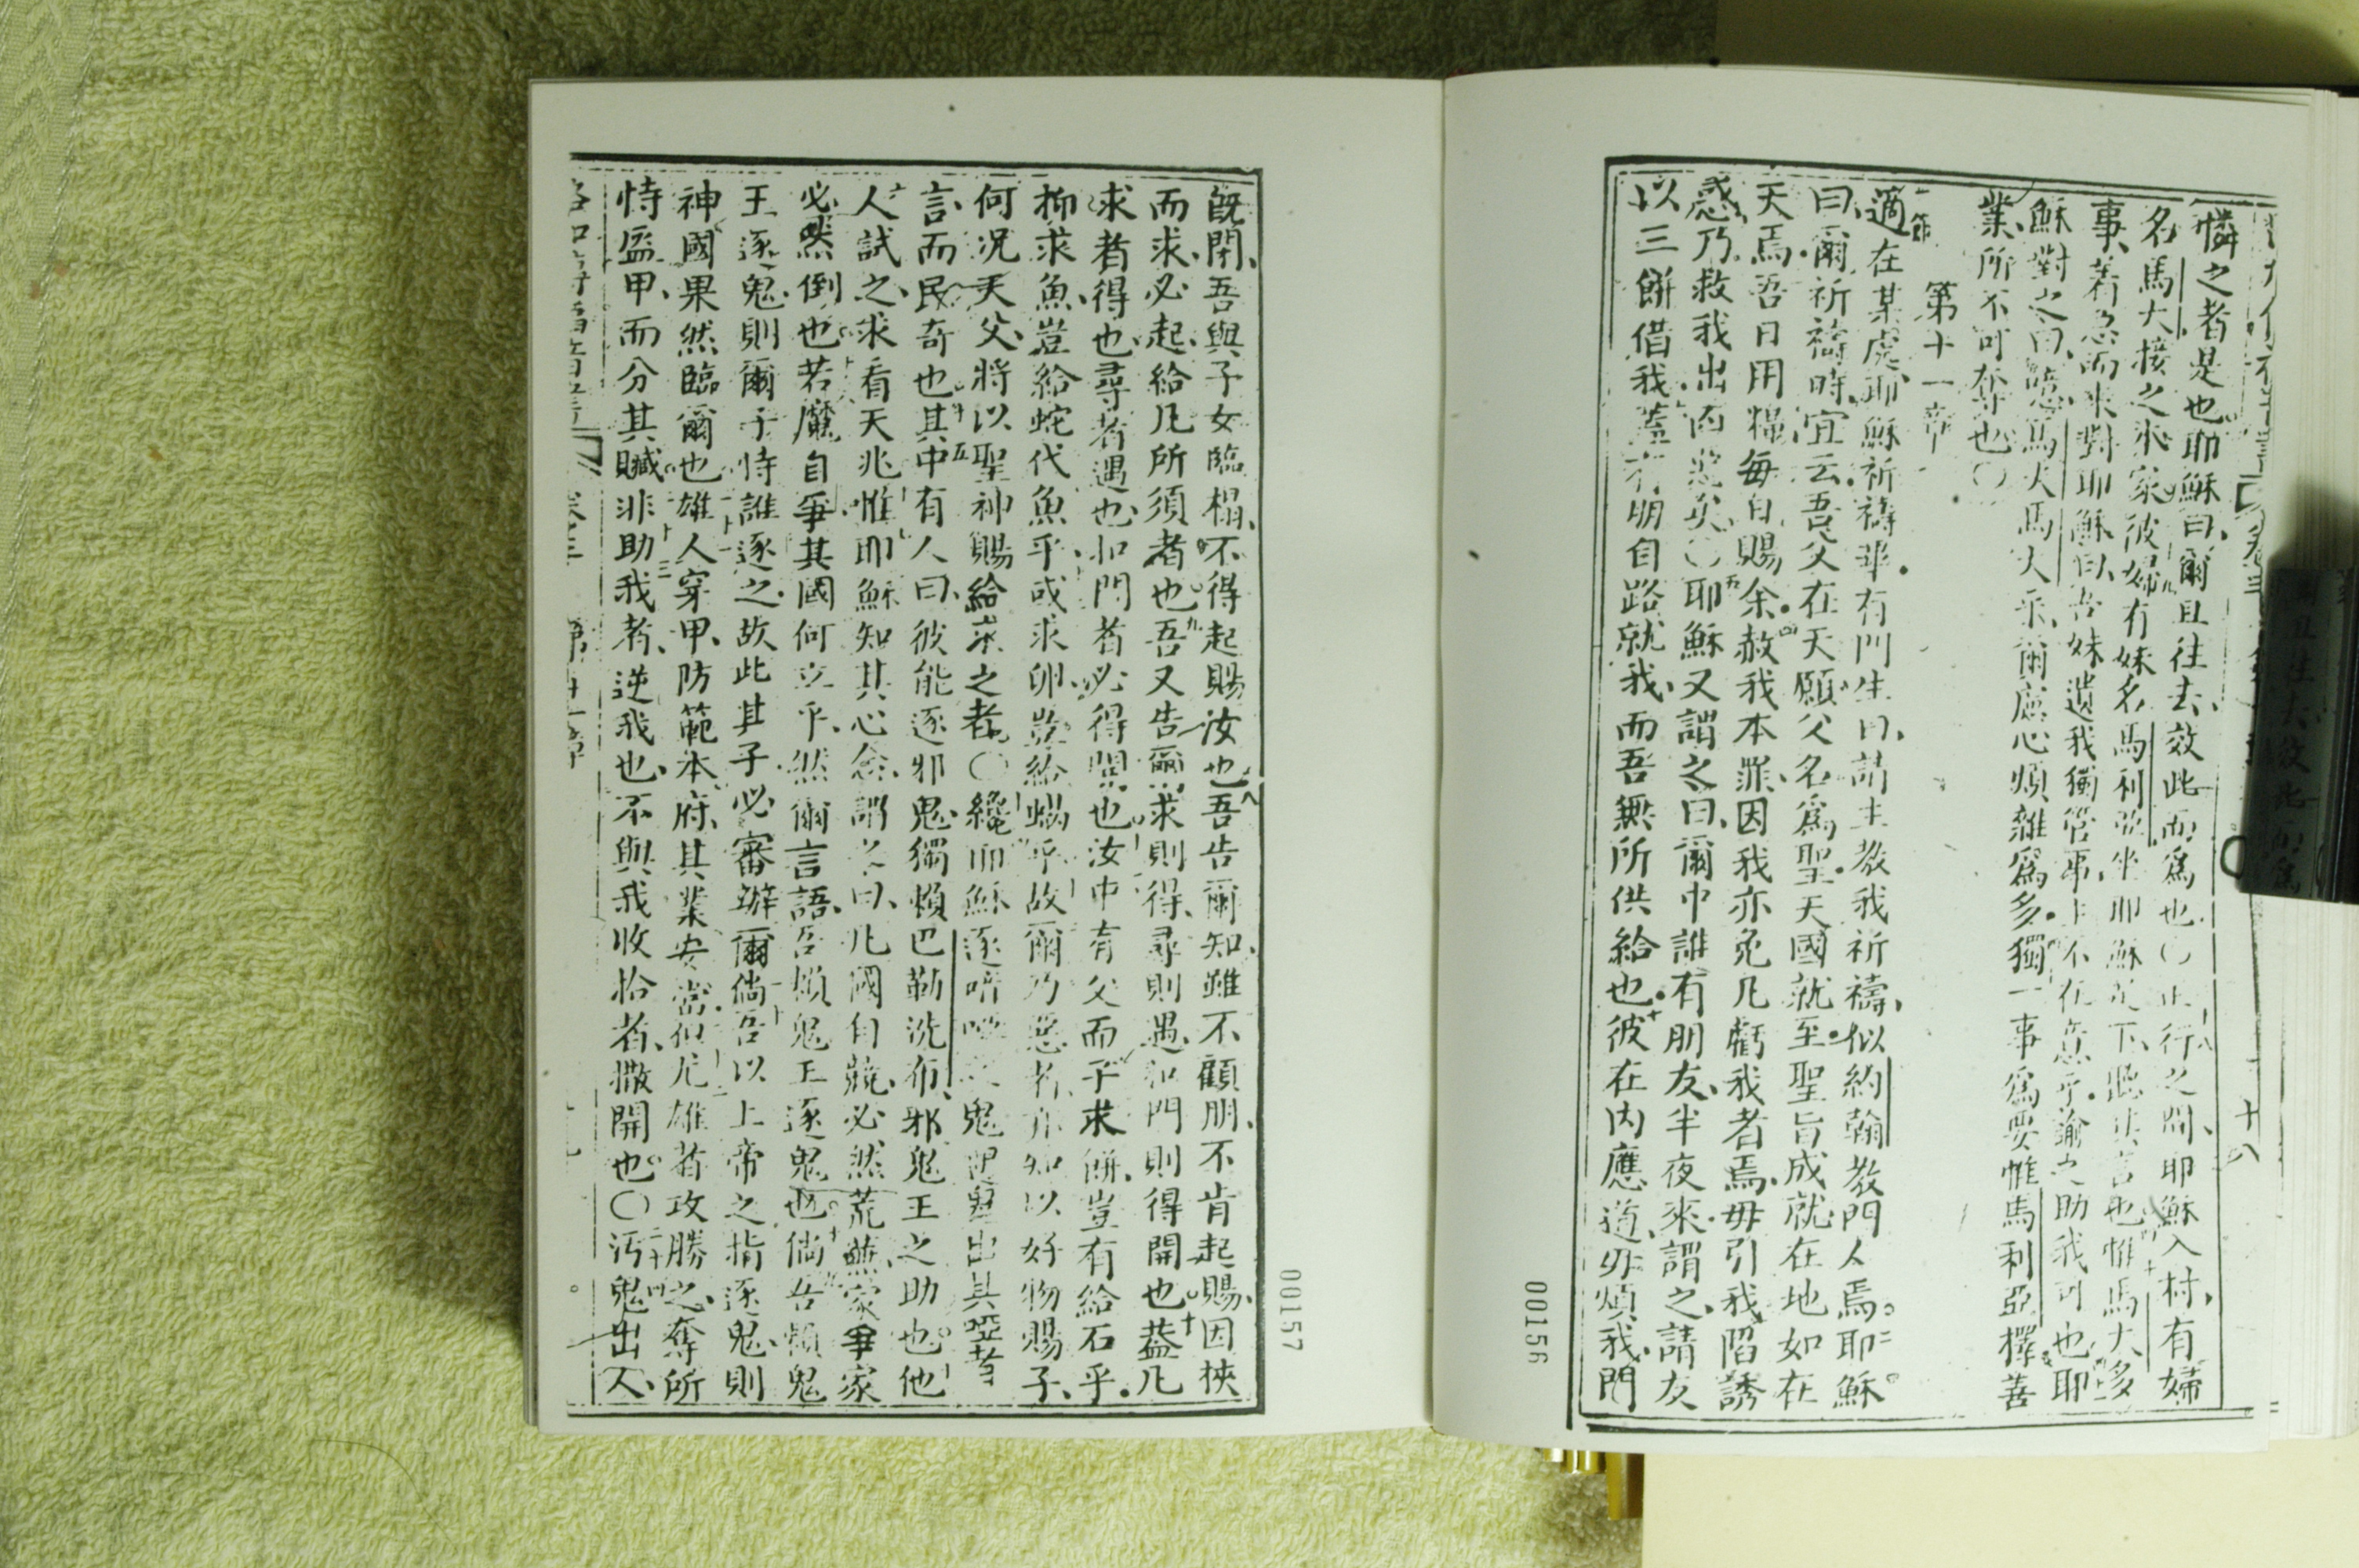 憐之者是也耶穌曰爾且往去效此而爲也〇正行之間耶穌入村有婦
名馬大接之於家彼婦有妹名馬利亞坐耶穌足下聽其言也惟馬大多
事著急而來對耶穌曰吾妹遺我獨管事主不在意乎諭之助我可也耶
穌對之曰噫馬大馬大乎爾慮心煩雜爲多獨一事爲要惟馬利亞擇善
業所不可奪也〇
第十一章
一節
適在某處耶穌祈禱畢有門生曰請主教我祈禱似約翰教門人焉二耶穌
曰爾祈禱時宜云吾父在天願父名爲聖天國就至聖旨成就在地如在
天焉吾日用糧每日賜余四赦我本罪因我亦免凡虧我者焉毋引我陷誘
惑乃救我出凶惡矣〇五耶穌又謂之曰爾中誰有朋友半夜來謂之請友
以三餅借我蓋有朋自路就我而吾無所供給也彼在內應道毋煩我門
十八
00156
既閉吾與子女臨榻不得起賜汝也八吾告爾知雖不顧朋不肯起賜因挾
而求必起給凡所須者也九吾又告爾求則得尋則遇扣門則得開也十蓋凡
求者得也尋者遇也扣門者必得開也汝中有父而子求餅豈有給石乎
抑求魚豈給蛇代魚乎或求卵豈給蝎乎故爾乃惡者亦知以好物賜子
何况天父將以聖神賜給求之者〇纔耶穌逐喑啞之鬼鬼出其啞者
言而民奇也十五其中有人曰彼能逐邪鬼獨賴巴勒洗布邪鬼王之助也他
人試之求看天兆惟耶穌知其心念謂之曰凡國自競必然荒蕪家爭家
必然倒也若魔自爭其國何立乎然爾言語吾賴鬼王逐鬼也倘吾賴鬼
王逐鬼則爾子恃誰逐之故此其子必審辦爾倘吾以上帝之指逐鬼則
神國果然臨爾也雄人穿甲防範本府其業安當但尤雄者攻勝之奪所
恃盔甲而分其贓非助我者逆我也不與我收拾者撒開也〇二十四汚鬼出人
00157